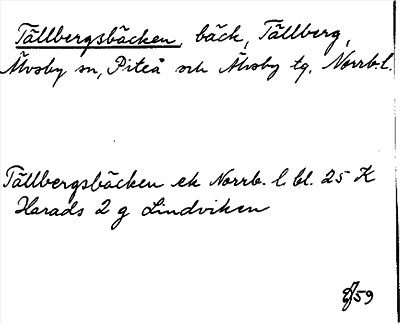 Tällbergsbäcken, bäck, Tällberg,
Älvsby sn, Piteå och Älvsby tg. Norrb. l.
Tällbergsbäcken ek Norrb. l bl. 25 K
Harads 2 g Lindviken
/59